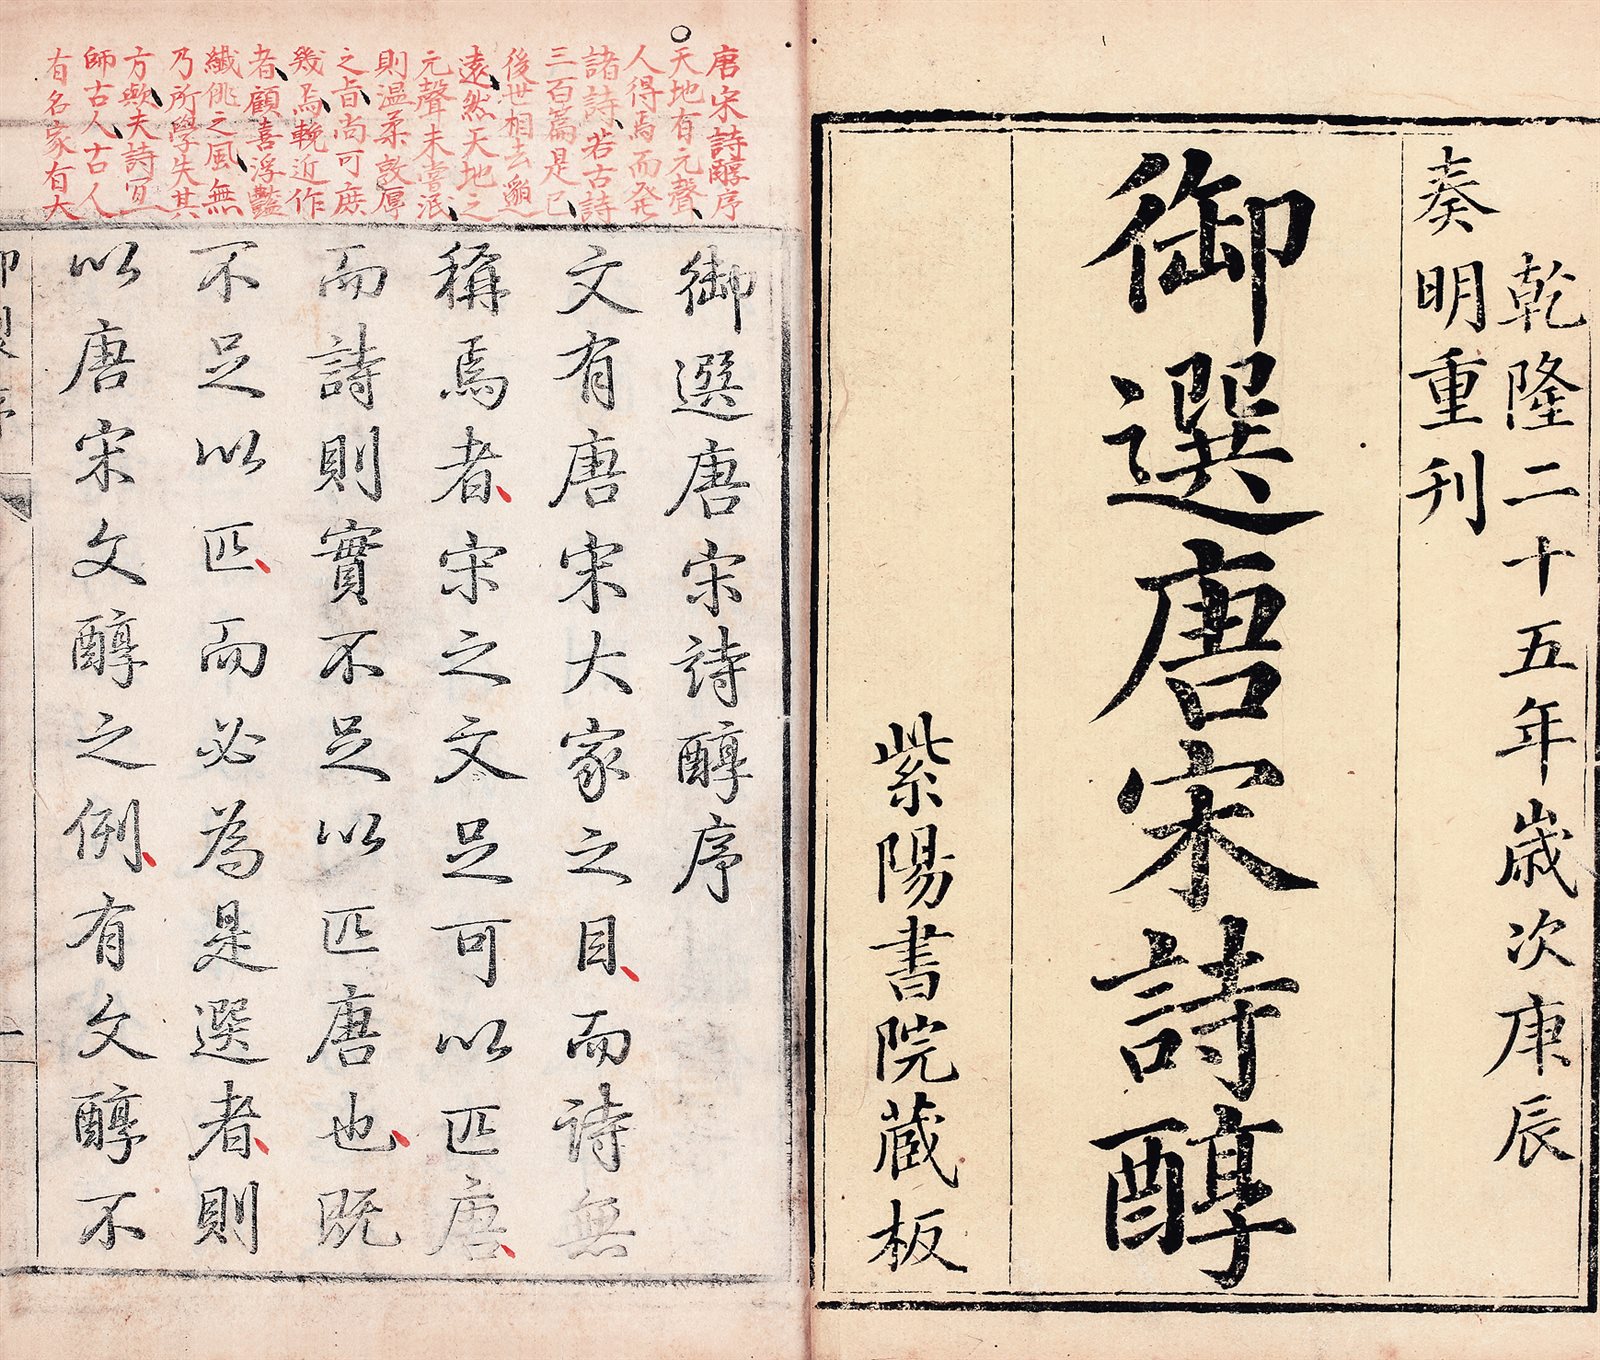 乾隆二十五年歲次庚辰
奏明重刊
御選唐宋詩醇
紫陽書院蔵板
唐宋詩醇序
天地有元聲
人得焉而発
諸詩若古詩
三百篇是已
後世相去邈
遠然天地之
元聲未嘗泯
則温柔敦厚
之旨尚可庶
幾焉輓近作
者顧喜浮豔
纎佻之風無
乃所學失其
方歟夫詩冝
師古人古人
有名家有大
御選唐宋詩醇序
文有唐宋大家之目而詩無
稱焉者宋之文足可以匹唐
而詩則實不足以匹唐也既
不足以匹而必為是選者則
以唐宋文醇之例有文醇不
御製序
一